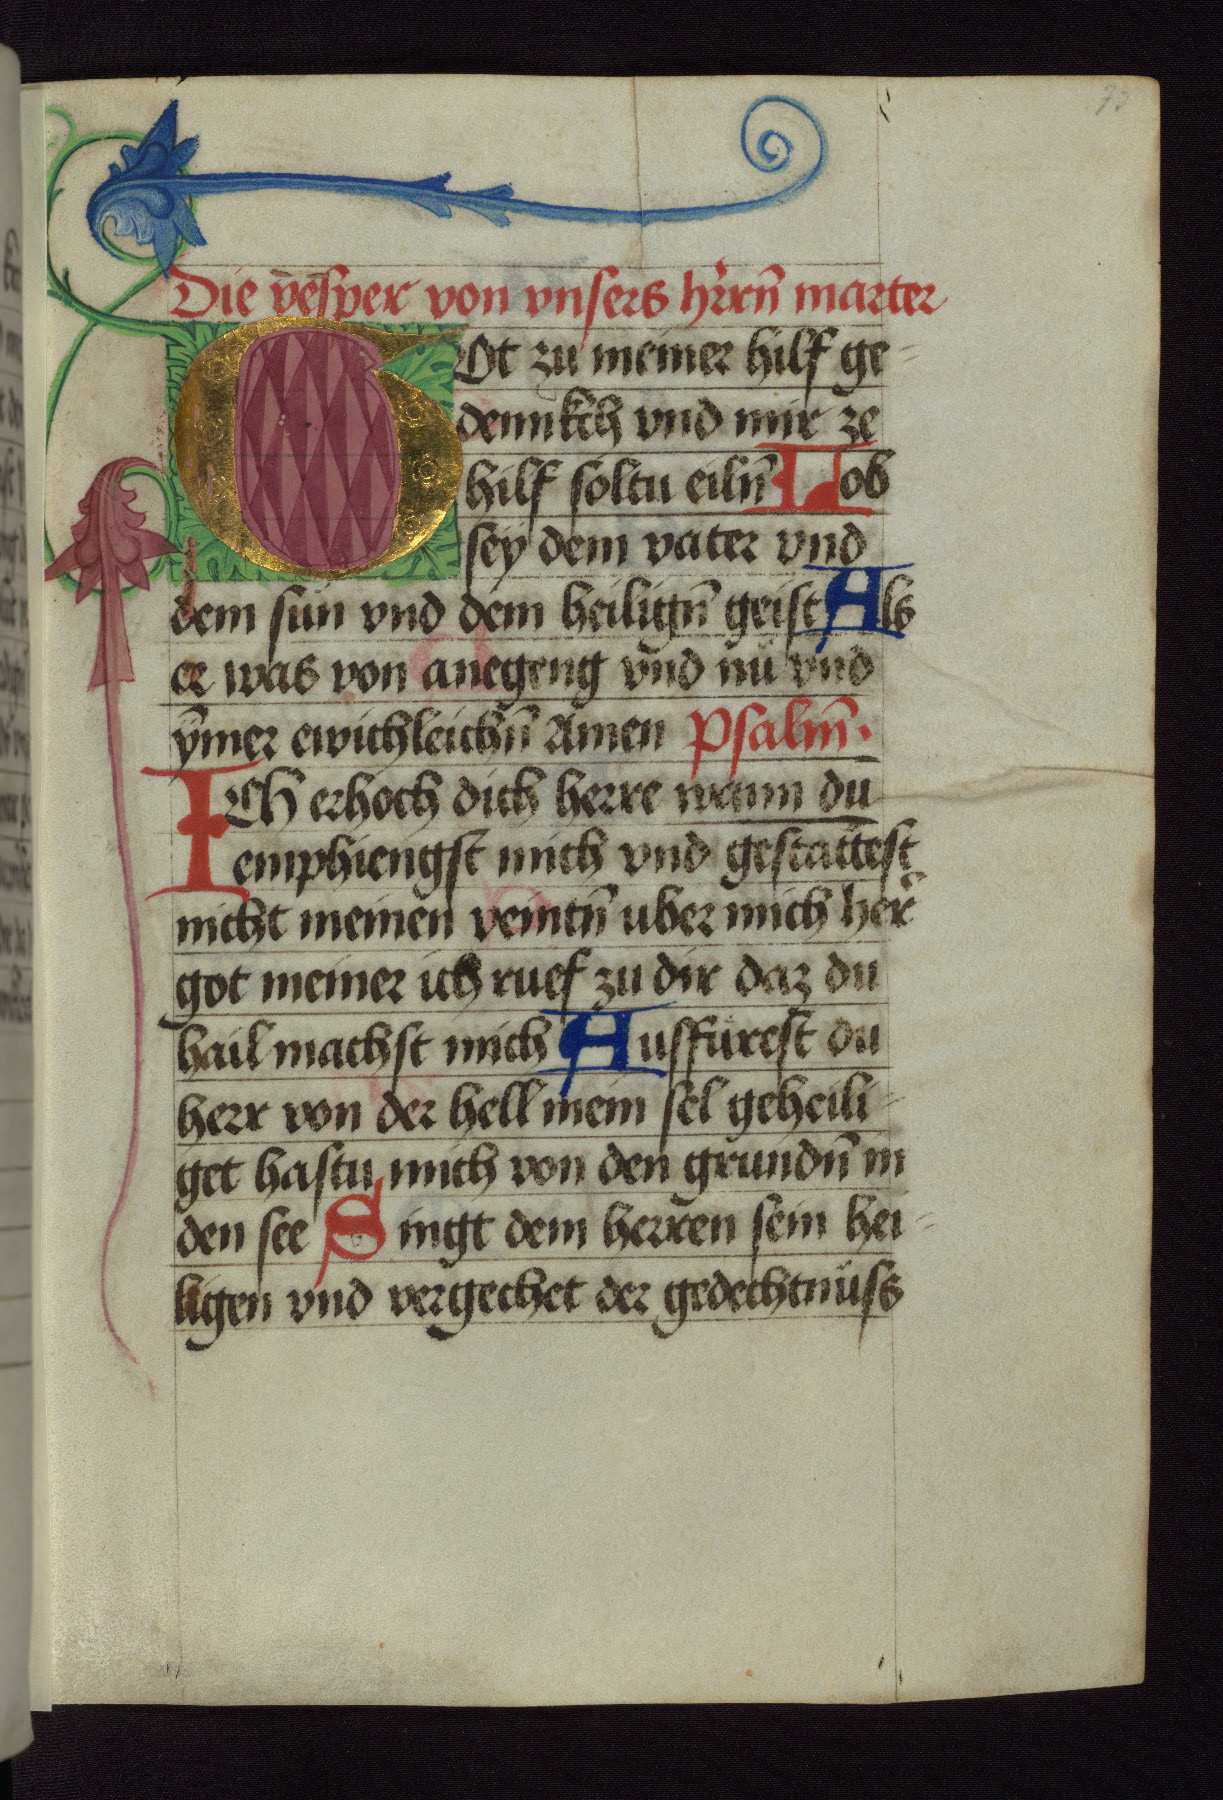 73
Die vesper von vnsers hr̄rn̄ marter
GOt zu meiner hilf ge-
dennkch vnd mir ze
hilf soltu eiln̄ Lob
sey dem vater vnd
dem sun vnd dem heilign̄ geist Als
er was von anegeng vnd nu vnd
ÿmer ewichleichn̄ Amen Psalm̄.
ICh erhoch dich herre wann du
emphiengst mich vnd gestattest
nicht meinen veintn̄ uber mich her̄
got meiner ich ruef zu dir daz du
hail machst mich Ausfürest du
herr von der hell mein sel geheili-
get hastu mich von den grundn̄ in
den see Singt dem herren sein hei-
ligen vnd vergechet der gedechtnüss